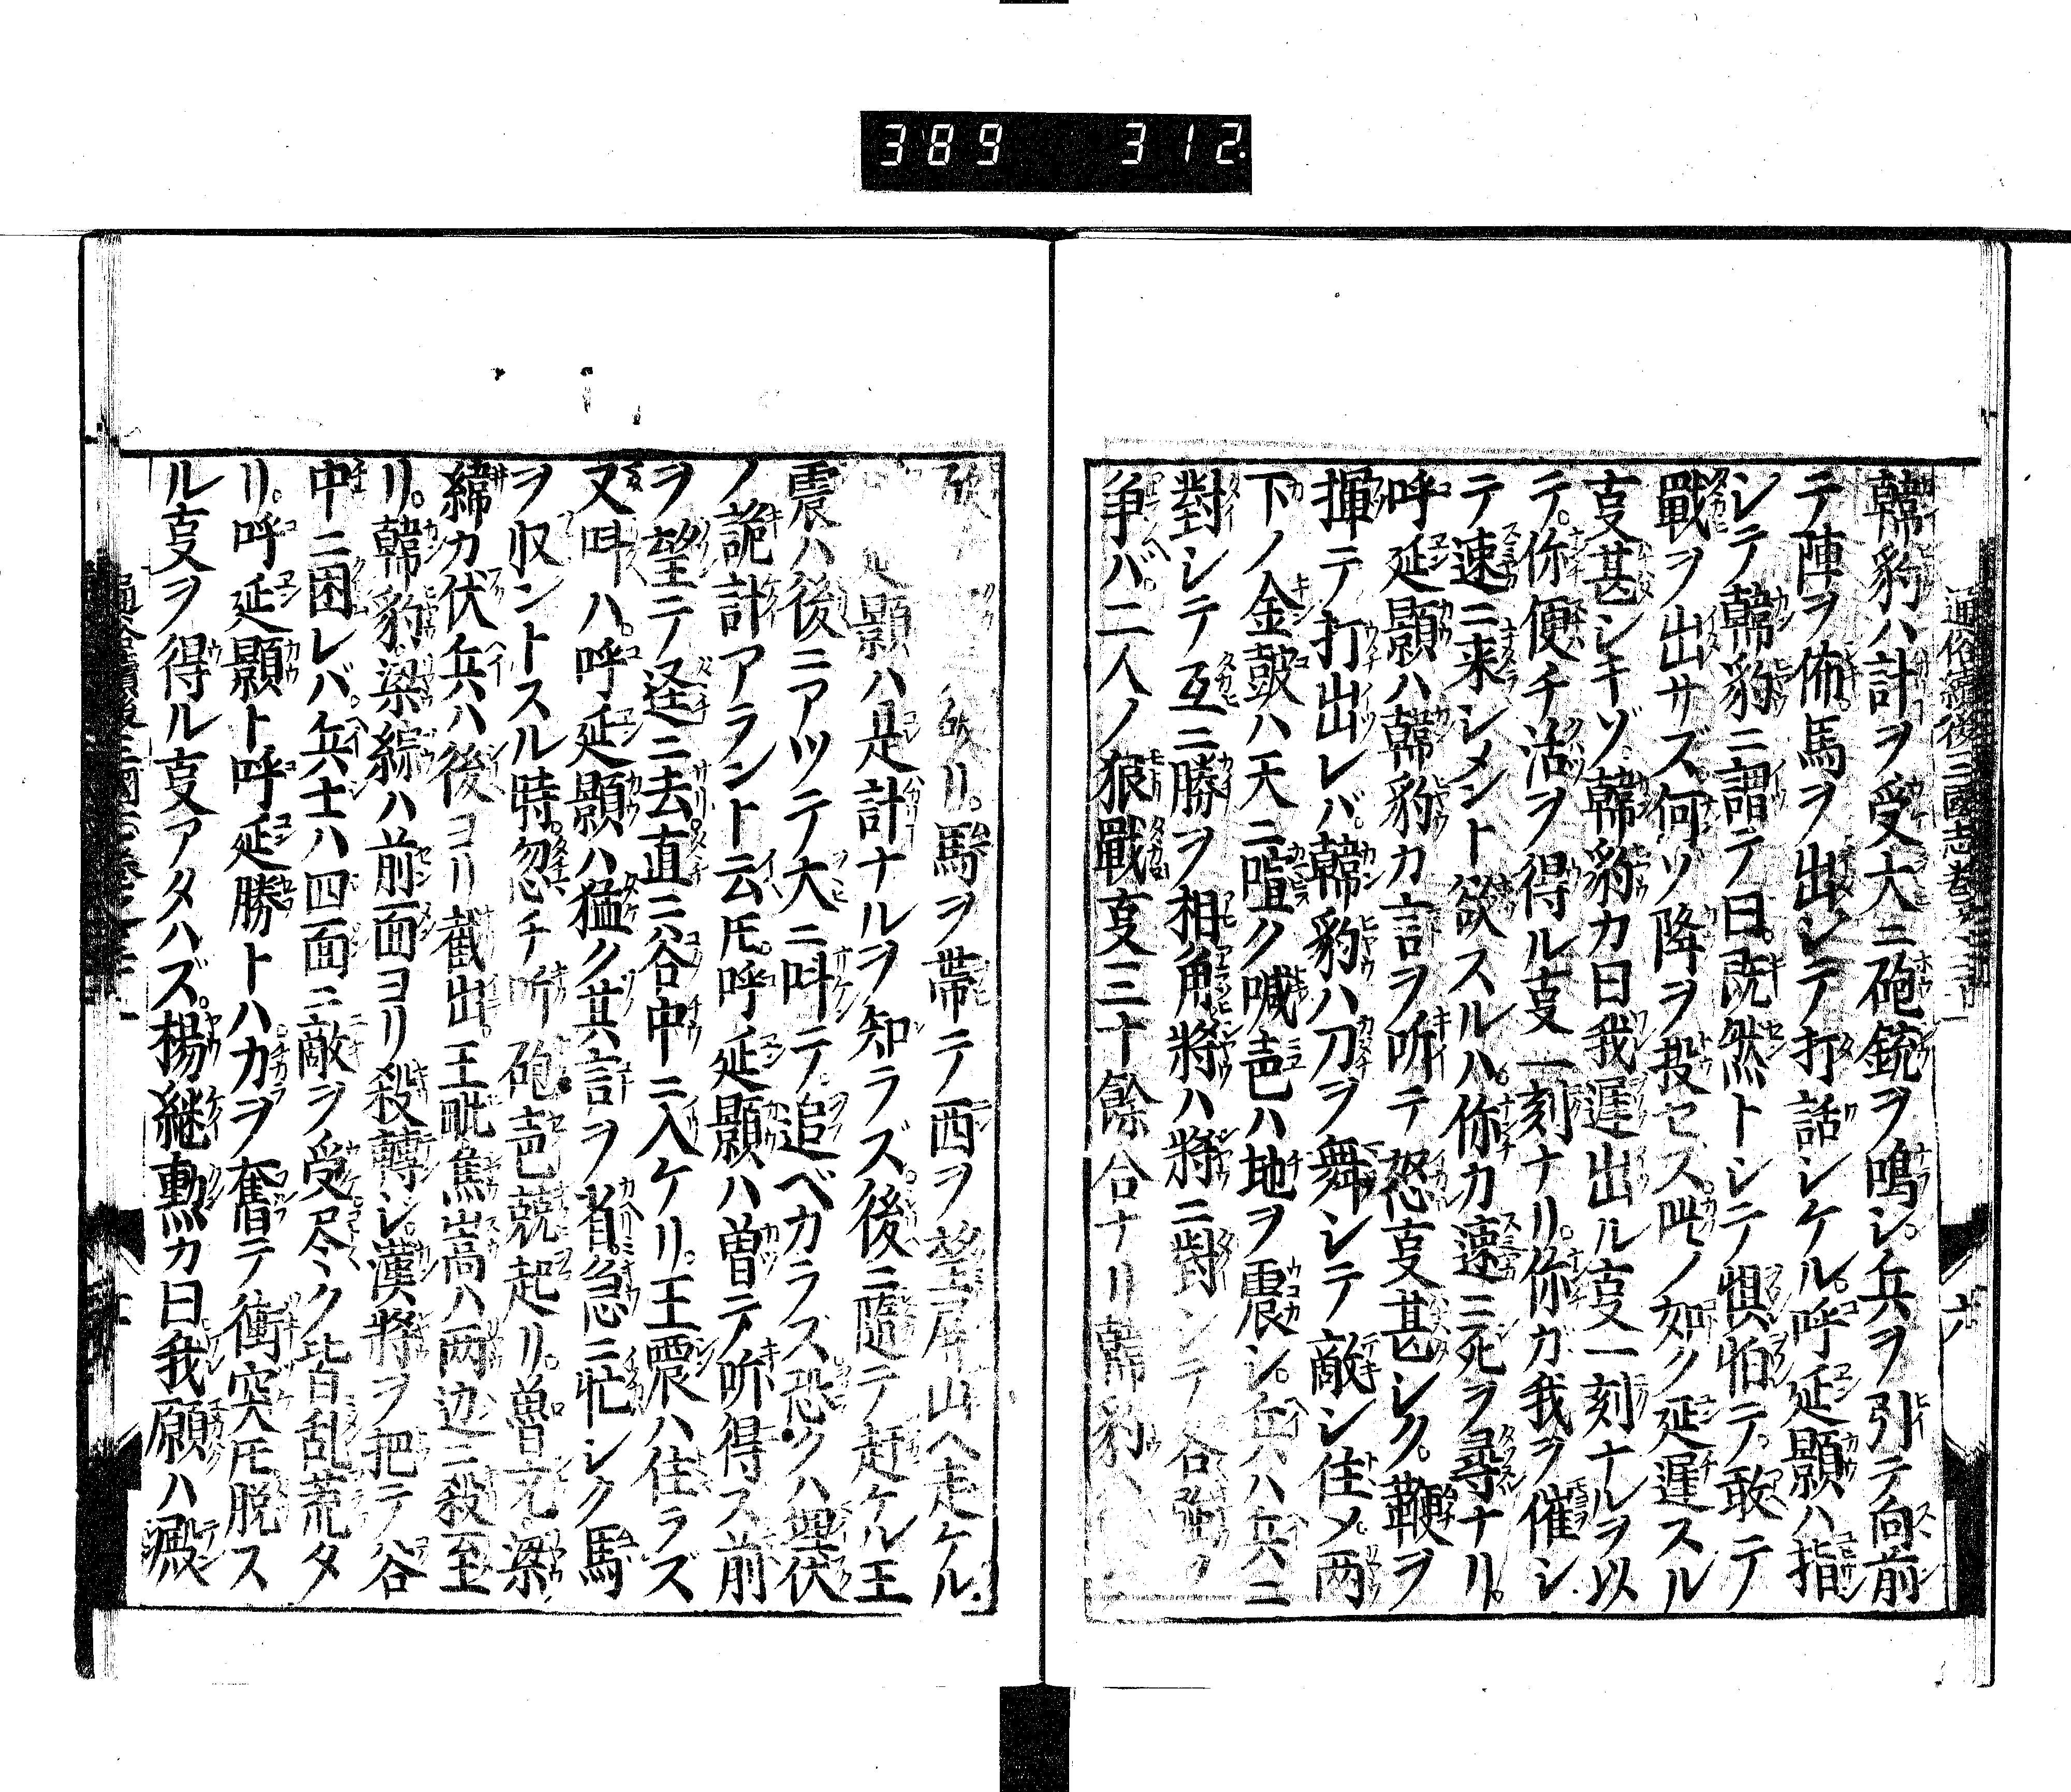 389 312
通俗續後三國志卷二十一
韓豹ハ計ヲ受大ニ砲銃ヲ鳴シ。兵ヲ引テ向前
テ陣ヲ佈。馬ヲ出シテ打話シケル。呼延顥ハ指
シテ韓豹ニ謂テ曰。既然トシテ惧怕テ。敢テ
戰ヲ出サズ。何ゾ降ヲ投セス。此ノ如ク延遲スル
叓甚シキゾ。韓豹カ曰我遲出ル叓一刻ナルヲ以
テ。你便チ活ヲ得ル叓一刻ナリ。你カ我ヲ催シ
テ速ニ来シメント欲スルハ。你カ速ニ死ヲ尋ナリ。
呼延顥ハ韓豹カ言ヲ听テ怒叓甚シク。鞭ヲ
揮テ打出レバ。韓豹ハ刀ヲ舞シテ敵シ住メ。两
下ノ金鼓ハ天ニ喧ク喊声ハ地ヲ震シ。兵ハ兵ニ
對シテ互ニ勝ヲ相角。將ハ將ニ對シテ各強ヲ
争バ。二人ノ狠戰叓三十餘合ナリ韓豹ハ
敗リ。騎ヲ帶テ西ヲ望屏山ヘ走ケル。
延顥ハ是計ナルヲ知ラズ。後ニ隨テ赶ケル王
震ハ後ニアツテ大ニ叫テ。追ベカラズ恐クハ埋伏
ノ詭計アラント云𪜈。呼延顥ハ曽テ听得ス前
ヲ望テ逕ニ去。直ニ谷中ニ入ケリ。王震ハ住ラズ
又叫ハ。呼延顥ハ猛ク其言ヲ省。急ニ忙シク馬
ヲ収ントスル時。忽チ听砲声競起リ。魯充梁
緯カ伏兵ハ後ヨリ截出。王毗焦嵩ハ两边ニ殺至
リ。韓豹梁綜ハ前面ヨリ殺轉シ。漢將ヲ把テ谷
中ニ困レバ。兵士ハ四面ニ敵ヲ受尽ク皆乱荒タ
リ。呼延顥ト呼延勝トハ力ヲ奮テ衝突𪜈脱ス
ル叓ヲ得ル叓アタハズ。楊継勲カ曰我願ハ殿